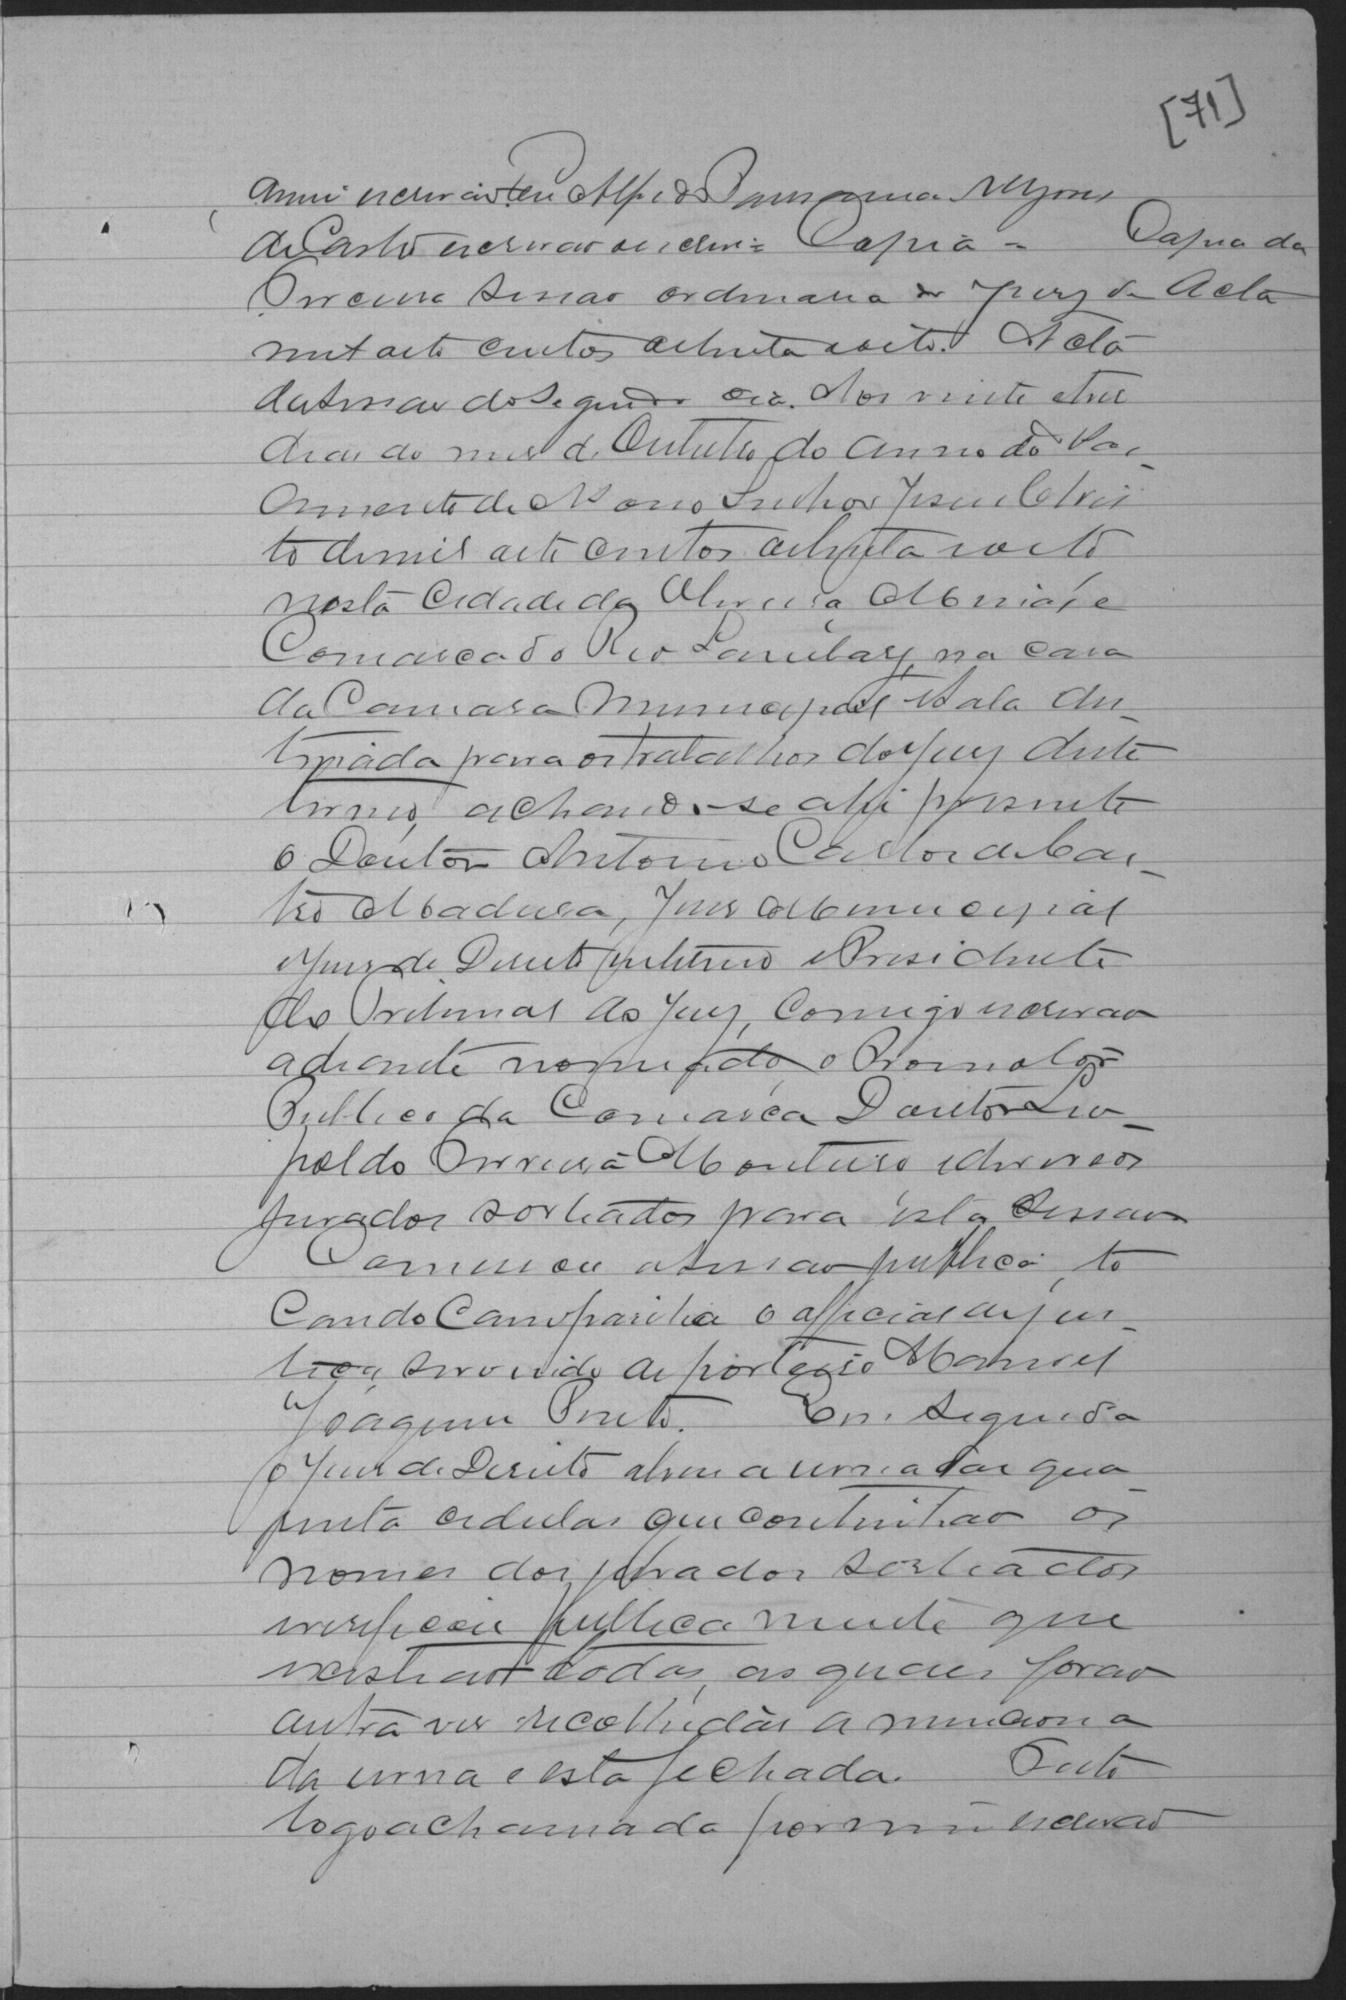 [71]
escrivão Eu Alfredo
de Castro escrivão o escrevi = Copia = Copia da
Terceira Sessão ordinaria do jury de Acta
mil oito centos oitenta e oito. Acta
da sessão do segundo dia. Aos vinte e tres
dias do mes de Outubro do anno do Nas_
cimento de Nosso Senhor Jesus Chris
to de mil oito centos oitenta e oito
nesta Cidade da Oliveira, Minas e
Comarca do Rio Lambary, na casa
da Camara Municipal e sala des_
tinada para os trabalhos do jury deste
termo, achando-se ahi presente
o Doutor Antonio Carlos de Cas_
tro Madura, Juiz Municipal
e Juiz de Direito interino e Presidente
do Tribunal do Jury, Comigo escrivão
adiante nomeado, o Promotor
Publico da Comarca Doutor Leo_
poldo Ferreira Monteiro e diversos
jurados sorteados para esta Sessão
Começou a sessão publica, to
cando Campainha o official de jus_
tiça servindo de porteiro Manoel
Joaquim Preto. Em seguida
o Juiz de Direito abriu a urna das qua
renta cedulas que continhão os
nomes dos jurados sorteados
verificou publicamente que
existião todas, as quaes forão
outra vez recolhidas a menciona
da urna e esta fechada. Feita
logo a chamada por mim escrivão